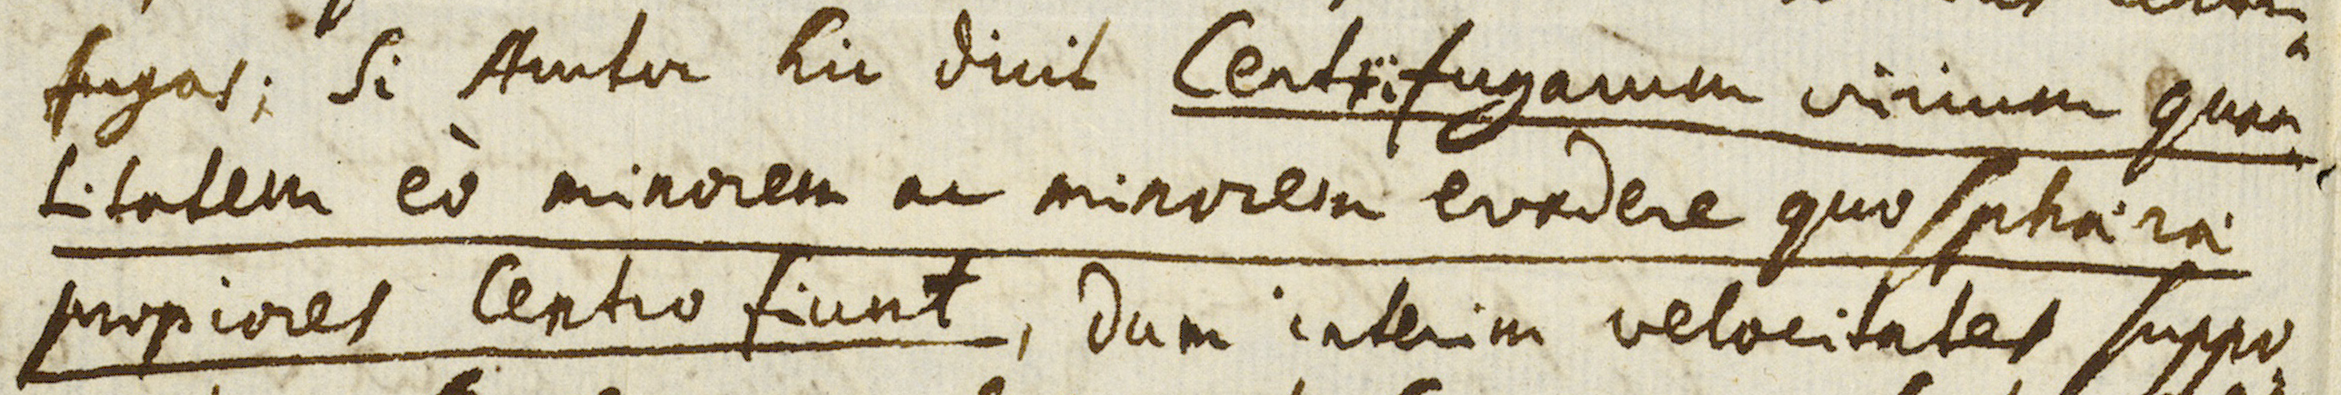 fugas; Si Autor hic dicit Centrifugarum virium quan
titatem eò minorem ac minorem evadere quo sphæræ
propiores Centro fiunt, dum interim velocitates suppo